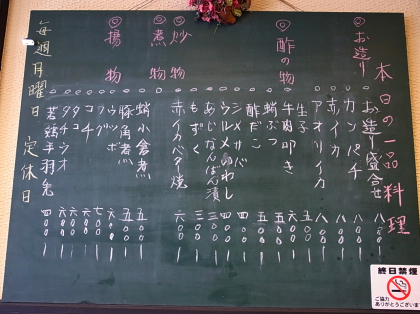 本日の一品料理
◎お造り
お造り盛合せ 八〇〇
カンパチ 八〇〇
赤イカ 八〇〇
アオリイカ 八〇〇
◎酢の物
生子 五〇〇
牛肉叩き 六〇〇
蛸ぶつ 五〇〇
酢だこ 五〇〇
シメサバ 四〇〇
ウルメいわし 四〇〇
あじなんばん漬 三〇〇
もずく 三〇〇
◎炒物
赤イカバター焼 六〇〇
◎煮物
蛸小倉煮 五〇〇
豚角煮 五〇〇
◎揚物
フグ 七〇〇
コチ 六〇〇
タコ 六〇〇
タチウオ 六〇〇
若鶏手羽先 四〇〇
毎週月曜日 定休日
終日禁煙
ご協力
ありがとうございます